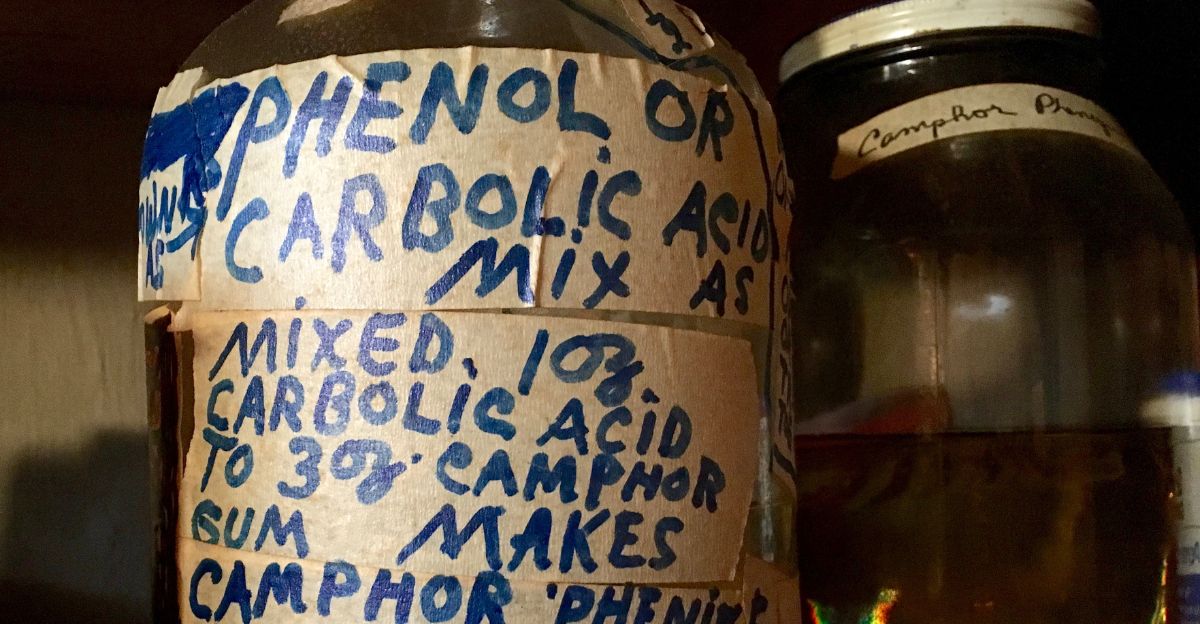 PHENOL OR
CARBOLIC ACID
MIX AS
AS
MIXED. 1 oz.
CARBOLIC ACID
TO 3 oz. CAMPHOR
GUM MAKES
CAMPHOR "PHENIX"
Camphor